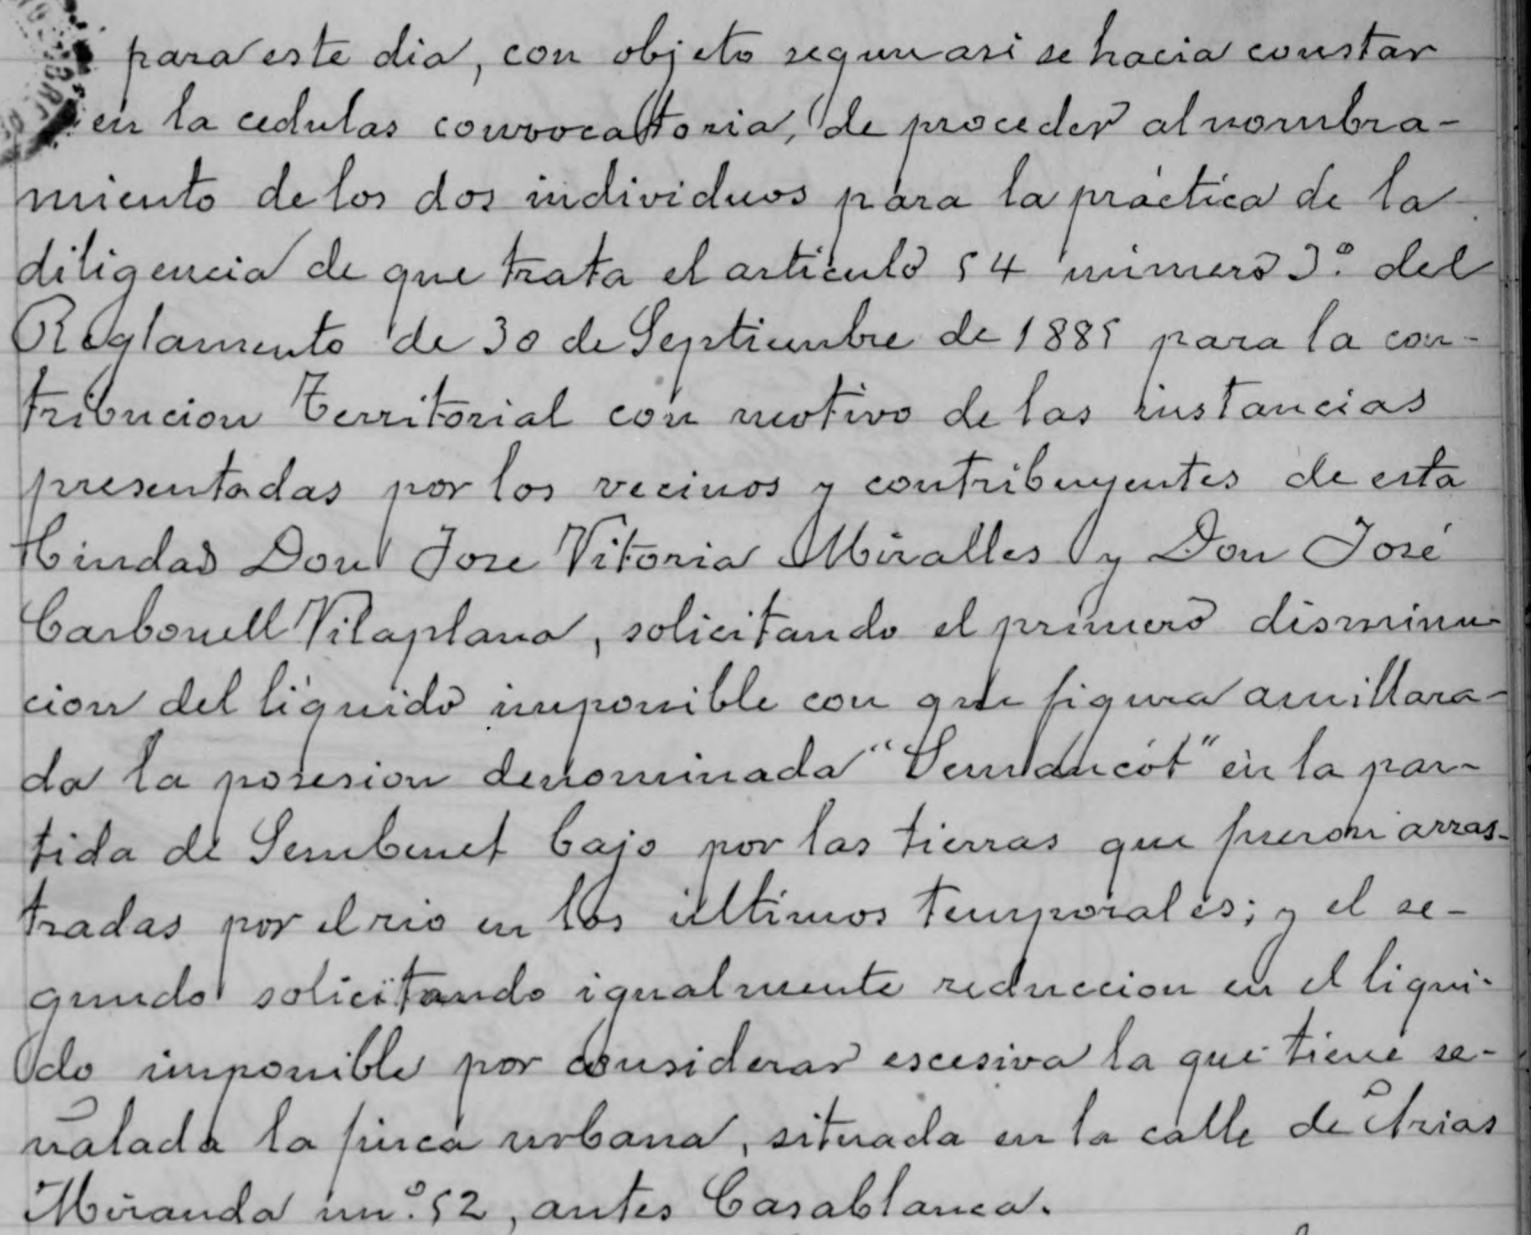 para este dia, con objeto segun asi se hacia constar
en la cedulas convocatoria, de proceder al nombra-
miento de los dos individuos para la práctica de la
diligencia de que trata el articulo 54 número 3.º del
Reglamento de 30 de Septiembre de 1885 para la con-
tribucion Territorial con motivo de las instancias
presentadas por los vecinos y contribuyentes de esta
Ciudad Don Jose Vitoria Miralles y Don José
Carbonell Vilaplana, solicitando el primero disminu-
cion del líquido imponible con que figura amillara-
da la posesion denominada "                " en la par-
tida de Sembenet bajo por las tierras que fueron arras-
tradas por el rio en los últimos temporales; y el se-
gundo solicitando igualmente reduccion en el liqui-
do imponible por considerar escesiva la que tiene se-
ñalada la finca urbana, situada en la calle de Arias
Miranda un.º 52, antes Casablanca.